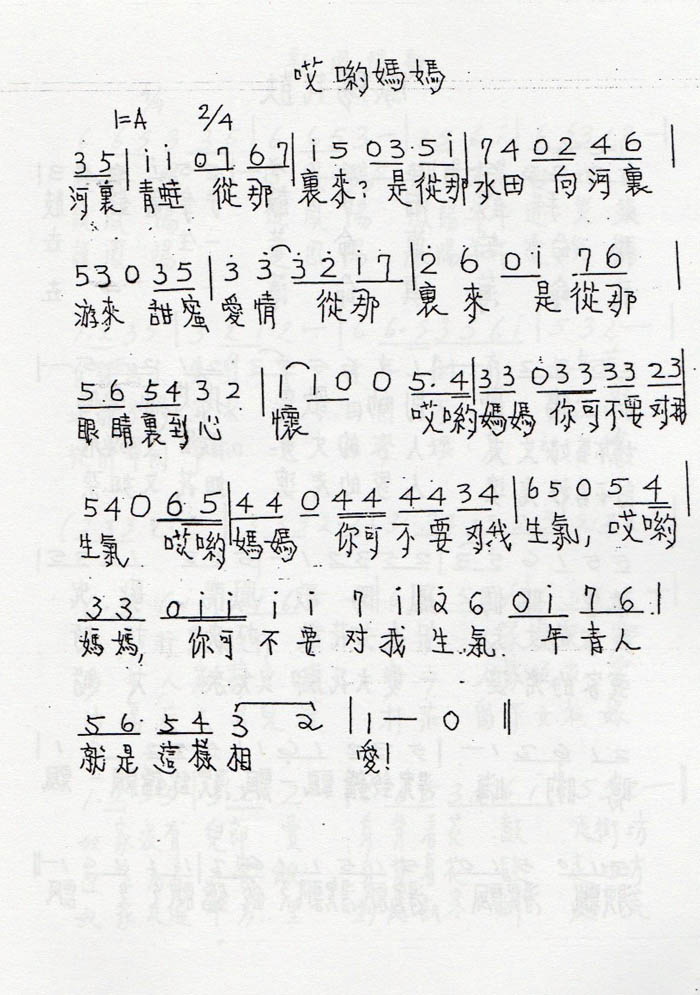 哎喲媽媽
1=A 2/4
3 5 | i i 0 7 6 7 | i 5 0 3 · 5 i | 7 4 0 2 4 6 |
河裏 青蛙 從那 裏來? 是從那水田 向河裏
5 3 0 3 5 | 3 · 3 · 3 2 i 7 | 2 6 0 i 7 6 |
游來 甜蜜愛情 從那 裏來 是從那
5 6 5 4 3 2 | 1 | 1 0 0 5 · 4 | 3 3 0 3 3 3 3 2 3
眼睛裏到心 懷 哎喲媽媽 你可不要对我
5 4 0 6 5 | 4 4 0 4 4 4 4 3 4 | 6 5 0 5 4
生氣 哎喲媽媽 你可不要对我 生氣, 哎喲
3 3 0 i i i 7 i 2 6 0 i 7 6 |
媽媽, 你可不要对我生氣. 年青人
5 6 · 5 4 3 2 | 1 — 0 ‖
就是這樣相 愛!